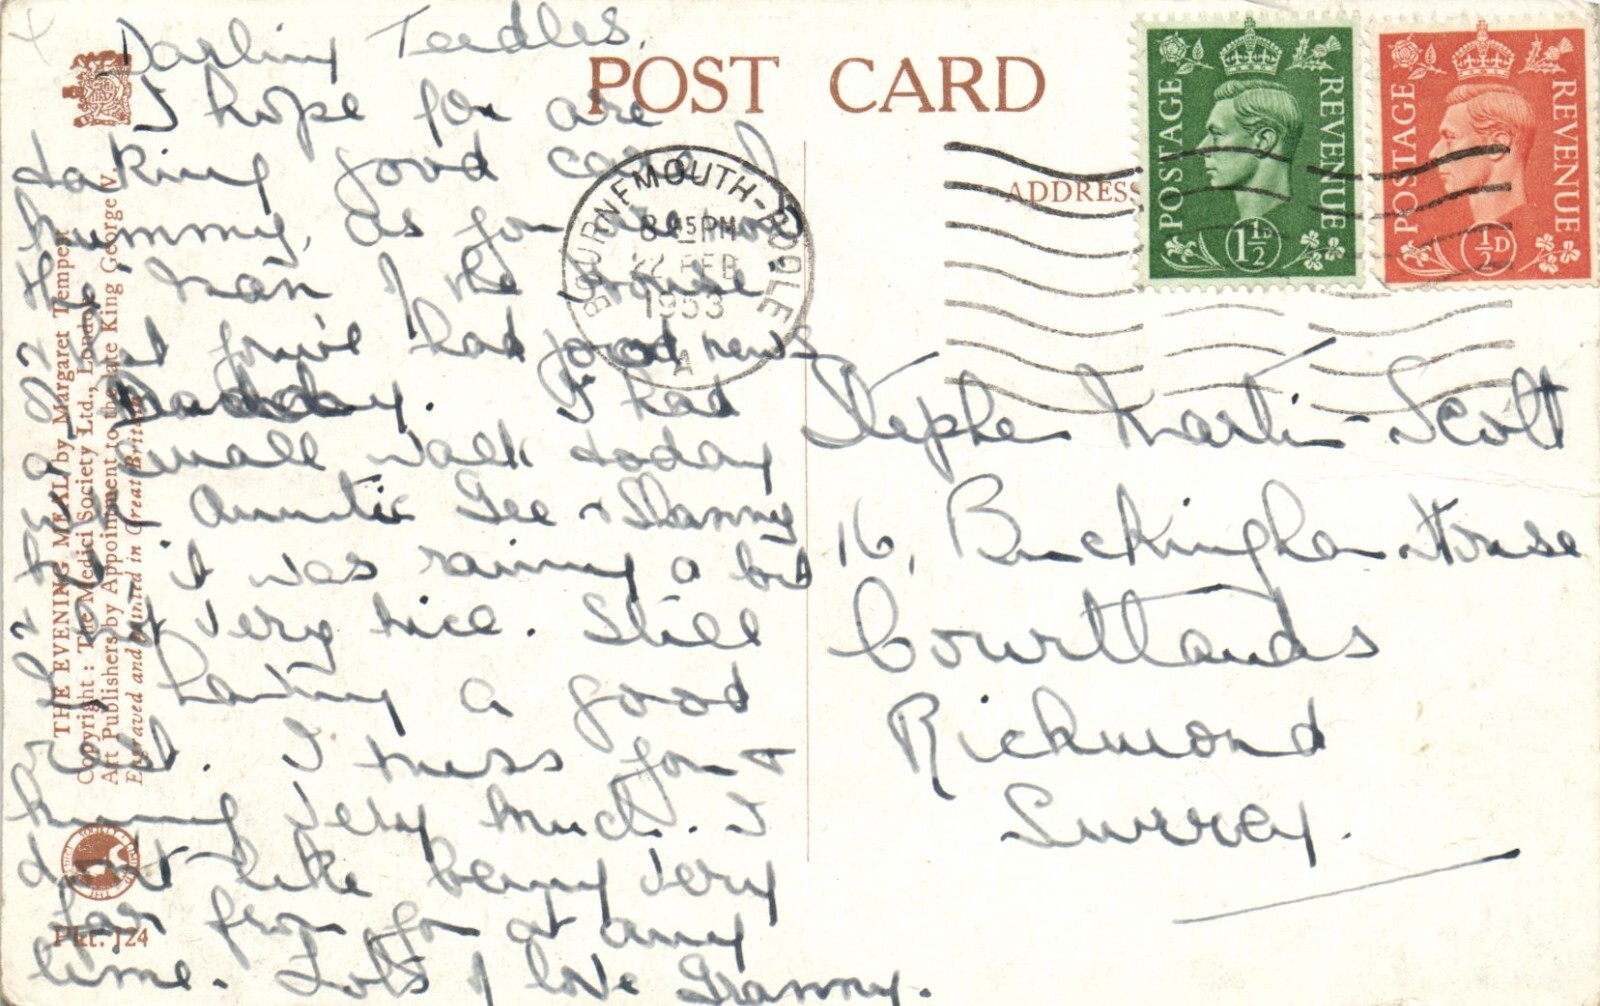 Darling Teedles,
I hope you are
taking good care of
Mummy, as you are now
the man of the House
& that you've had good news
of Daddy. I had
a small walk today
with Auntie Gee & Granny
but it was rainy a bit
& not very nice. Still
I'm having a good
rest. I miss you &
Mummy very much. I
don't like being very
far from you at any
time. Lots of love Granny.
POST CARD
ADDRESS
BOURNEMOUTH-POOLE
8 45 PM
22 FEB
1953
A
POSTAGE
REVENUE
1½D
POSTAGE
REVENUE
½D
Stephen Martin-Scott
16, Buckingham House
Courtlands
Richmond
Surrey.
THE EVENING MEAL by Margaret Tempest
Copyright: The Medici Society Ltd., London.
Art Publishers by Appointment to the late King George V.
Engraved and Printed in Great Britain
Pkt. 124